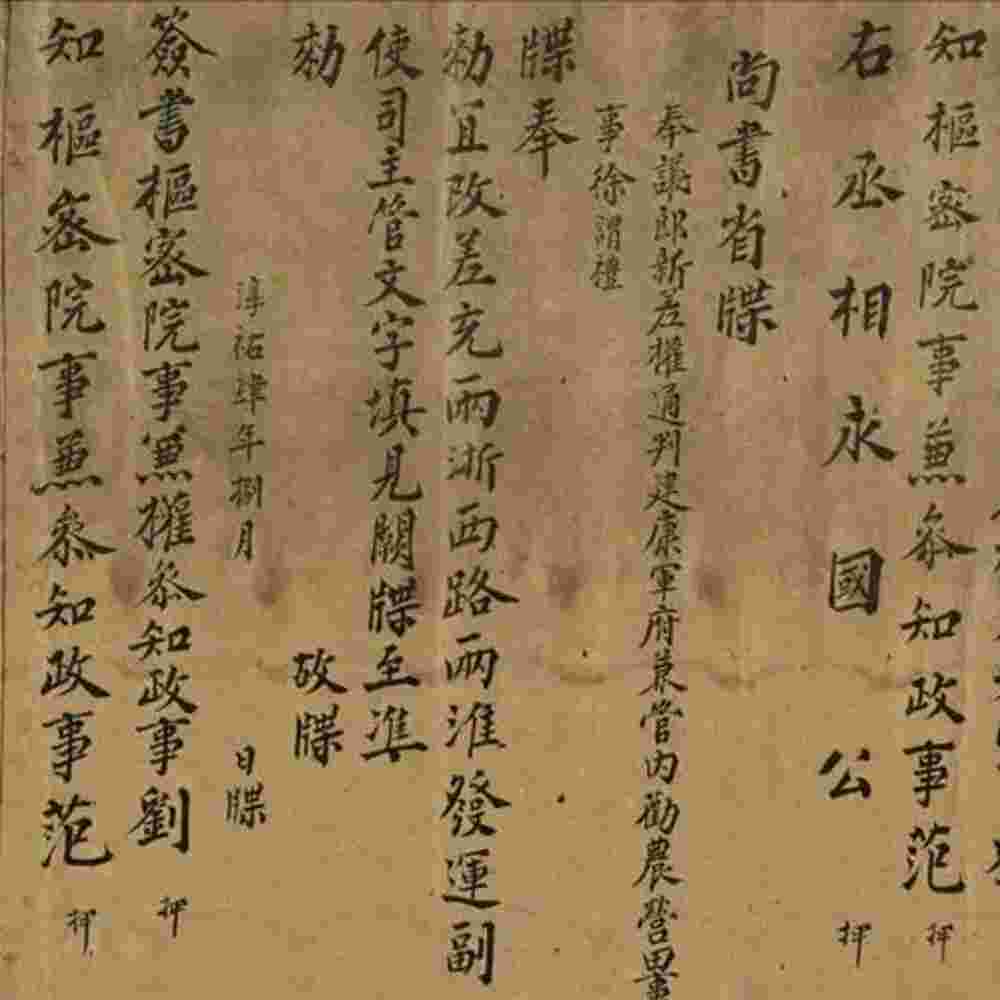 知樞密院事兼叅知政事范 押
右丞相永國公 押
尚書省牒
奉議郎新差權通判建康軍府兼管内勸農營田
事徐謂禮
牒奉
勑宜改差充兩浙西路兩淮發運副
使司主管文字填見闕牒至準
勑 故牒
淳祐肆年捌月 日牒
簽書樞密院事兼權叅知政事劉 押
知樞密院事兼叅知政事范 押